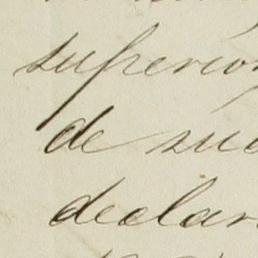 superior
de su
declar